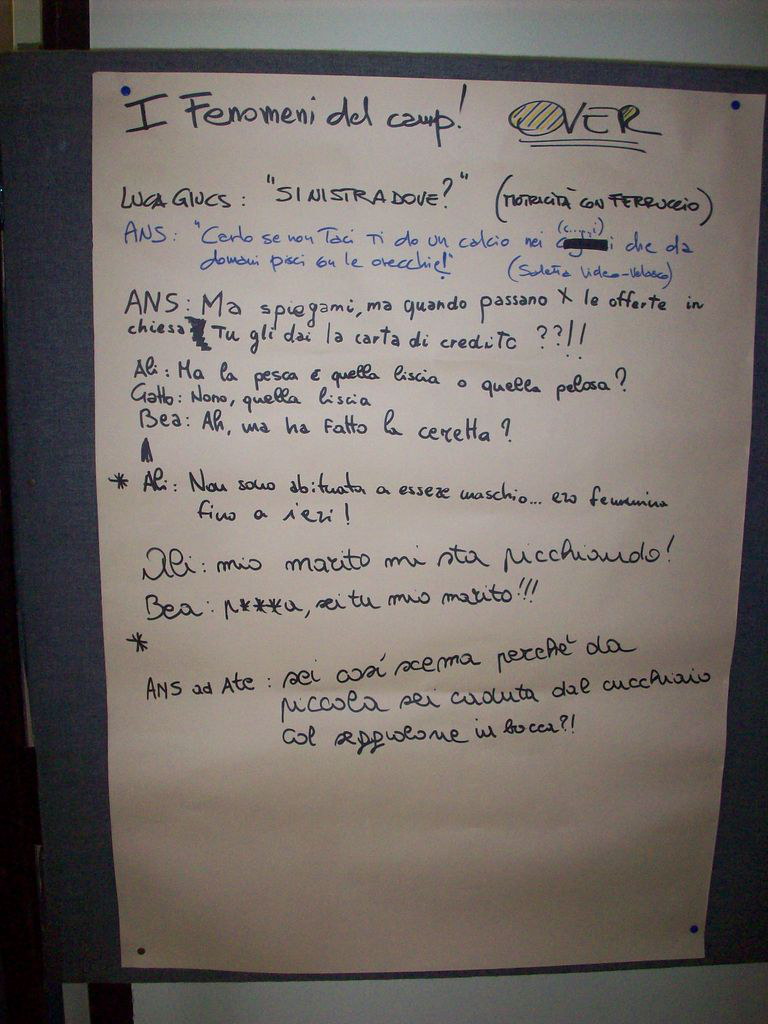 I Fenomeni del camp! OVER
LUCA GIUCS : "SINISTRA DOVE?" (MOTRICITÀ CON FERRUCCIO)
ANS: "Certo se non Taci Ti do un calcio nei (c...i) che da
domani pisci con le orecchie!" (Saletta Video-Velasco)
ANS: Ma spiegami, ma quando passano X le offerte in
chiesa Tu gli dai la carta di credito ??!!
Ali: Ma la pesca è quella liscia o quella pelosa?
Gatto: Nono, quella liscia
Bea: Ah, ma ha fatto la ceretta?
* Ali: Non sono abituata a essere maschio... ero femmina
fino a ieri!
Ali: mio marito mi sta picchiando!
Bea: p***a, sei tu mio marito!!!
*
ANS ad Ate : sei così scema perché da
piccola sei caduta dal cucchiaio
col seggiolone in bocca?!